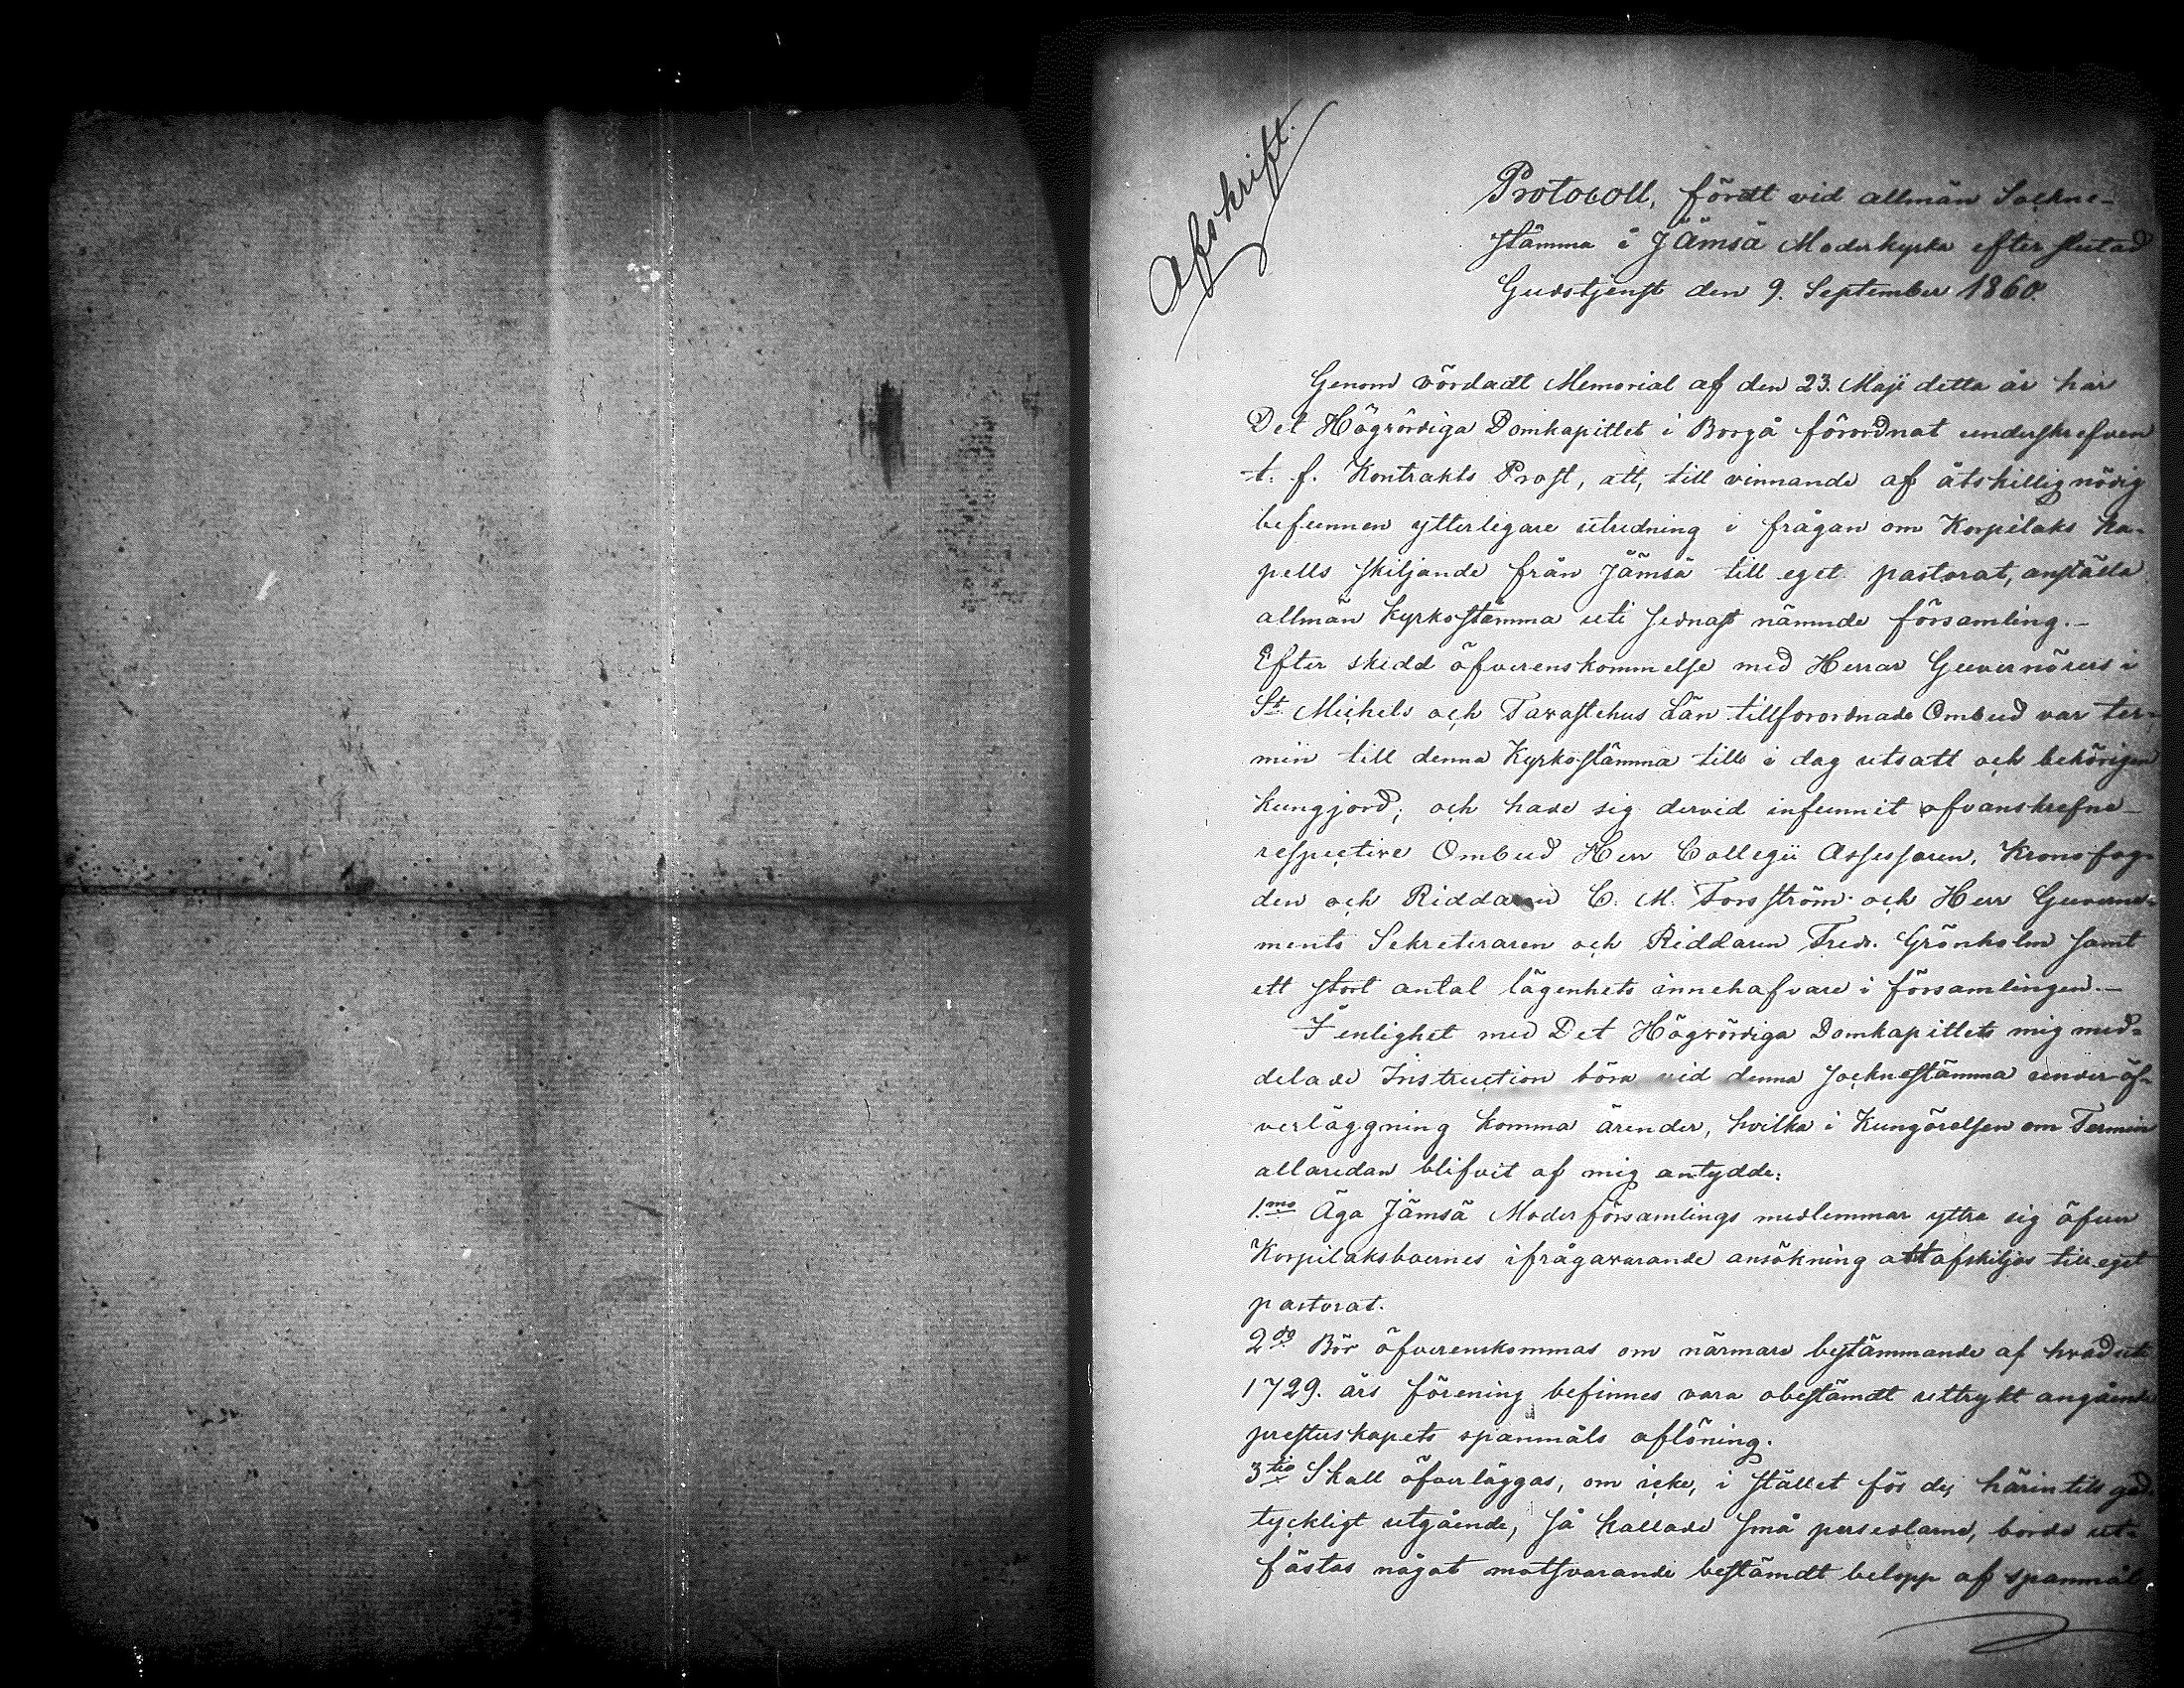 Afskrift.
Protocoll, fördt vid allmän Sockne-
stämma i Jämsä Moderkyrka efter slutad
Gudstjenst den 9. September 1860.
Genom vördadt Memorial af den 23. Maji detta år har
Det Högvördiga Domkapitlet i Borgå förordnat underskrefven
t. f. Kontrakts Prost, att, till vinnande af åtskillig nödig
befunnen ytterligare utredning i frågan om Korpilaks Ka-
pells skiljande från Jämsä till eget pastorat, anställa
allmän Kyrkostämma uti sednast nämnde församling.-
Efter skedd öfverenskommelse med Herrar Guvernörers i
St. Michels och Tavastehus Län tillforordnade Ombud var ter-
min till denna Kyrkostämma till i dag utsatt och behörigen
kungjord; och hade sig dervid infunnit ofvanskrefne
respective Ombud Herr Collegii Assessoren, Kronofog-
den och Riddaren C. M. Forsström och Herr Guverne-
ments Sekreteraren och Riddaren Fredr. Grönholm samt
ett stort antal lägenhets innehafvare i församlingen.-
I enlighet med Det Högvördiga Domkapitlets mig med-
delade Instruction böra vid denna socknestämma under öf-
verläggning komma ärender, hvilka i Kungörelsen om Termin
allaredan blifvit af mig antydde:
1.mo Äga Jämsä Moderförsamlings medlemmar yttra sig öfver
Korpilaksboernes ifrågavarande ansökning att afskiljas till eget
pastorat.
2do Bör öfverenskommas om närmare bestämmande af hvad uti
1729. års förening befinnes vara obestämdt uttrykt angående
presterskapets spanmåls aflöning.
3tio Skall öfverläggas, om icke, i stället för de, härintills god-
tyckligt utgående, så kallade små persedlarne, borde ut-
fästas något motsvarande bestämdt belopp af spanmål